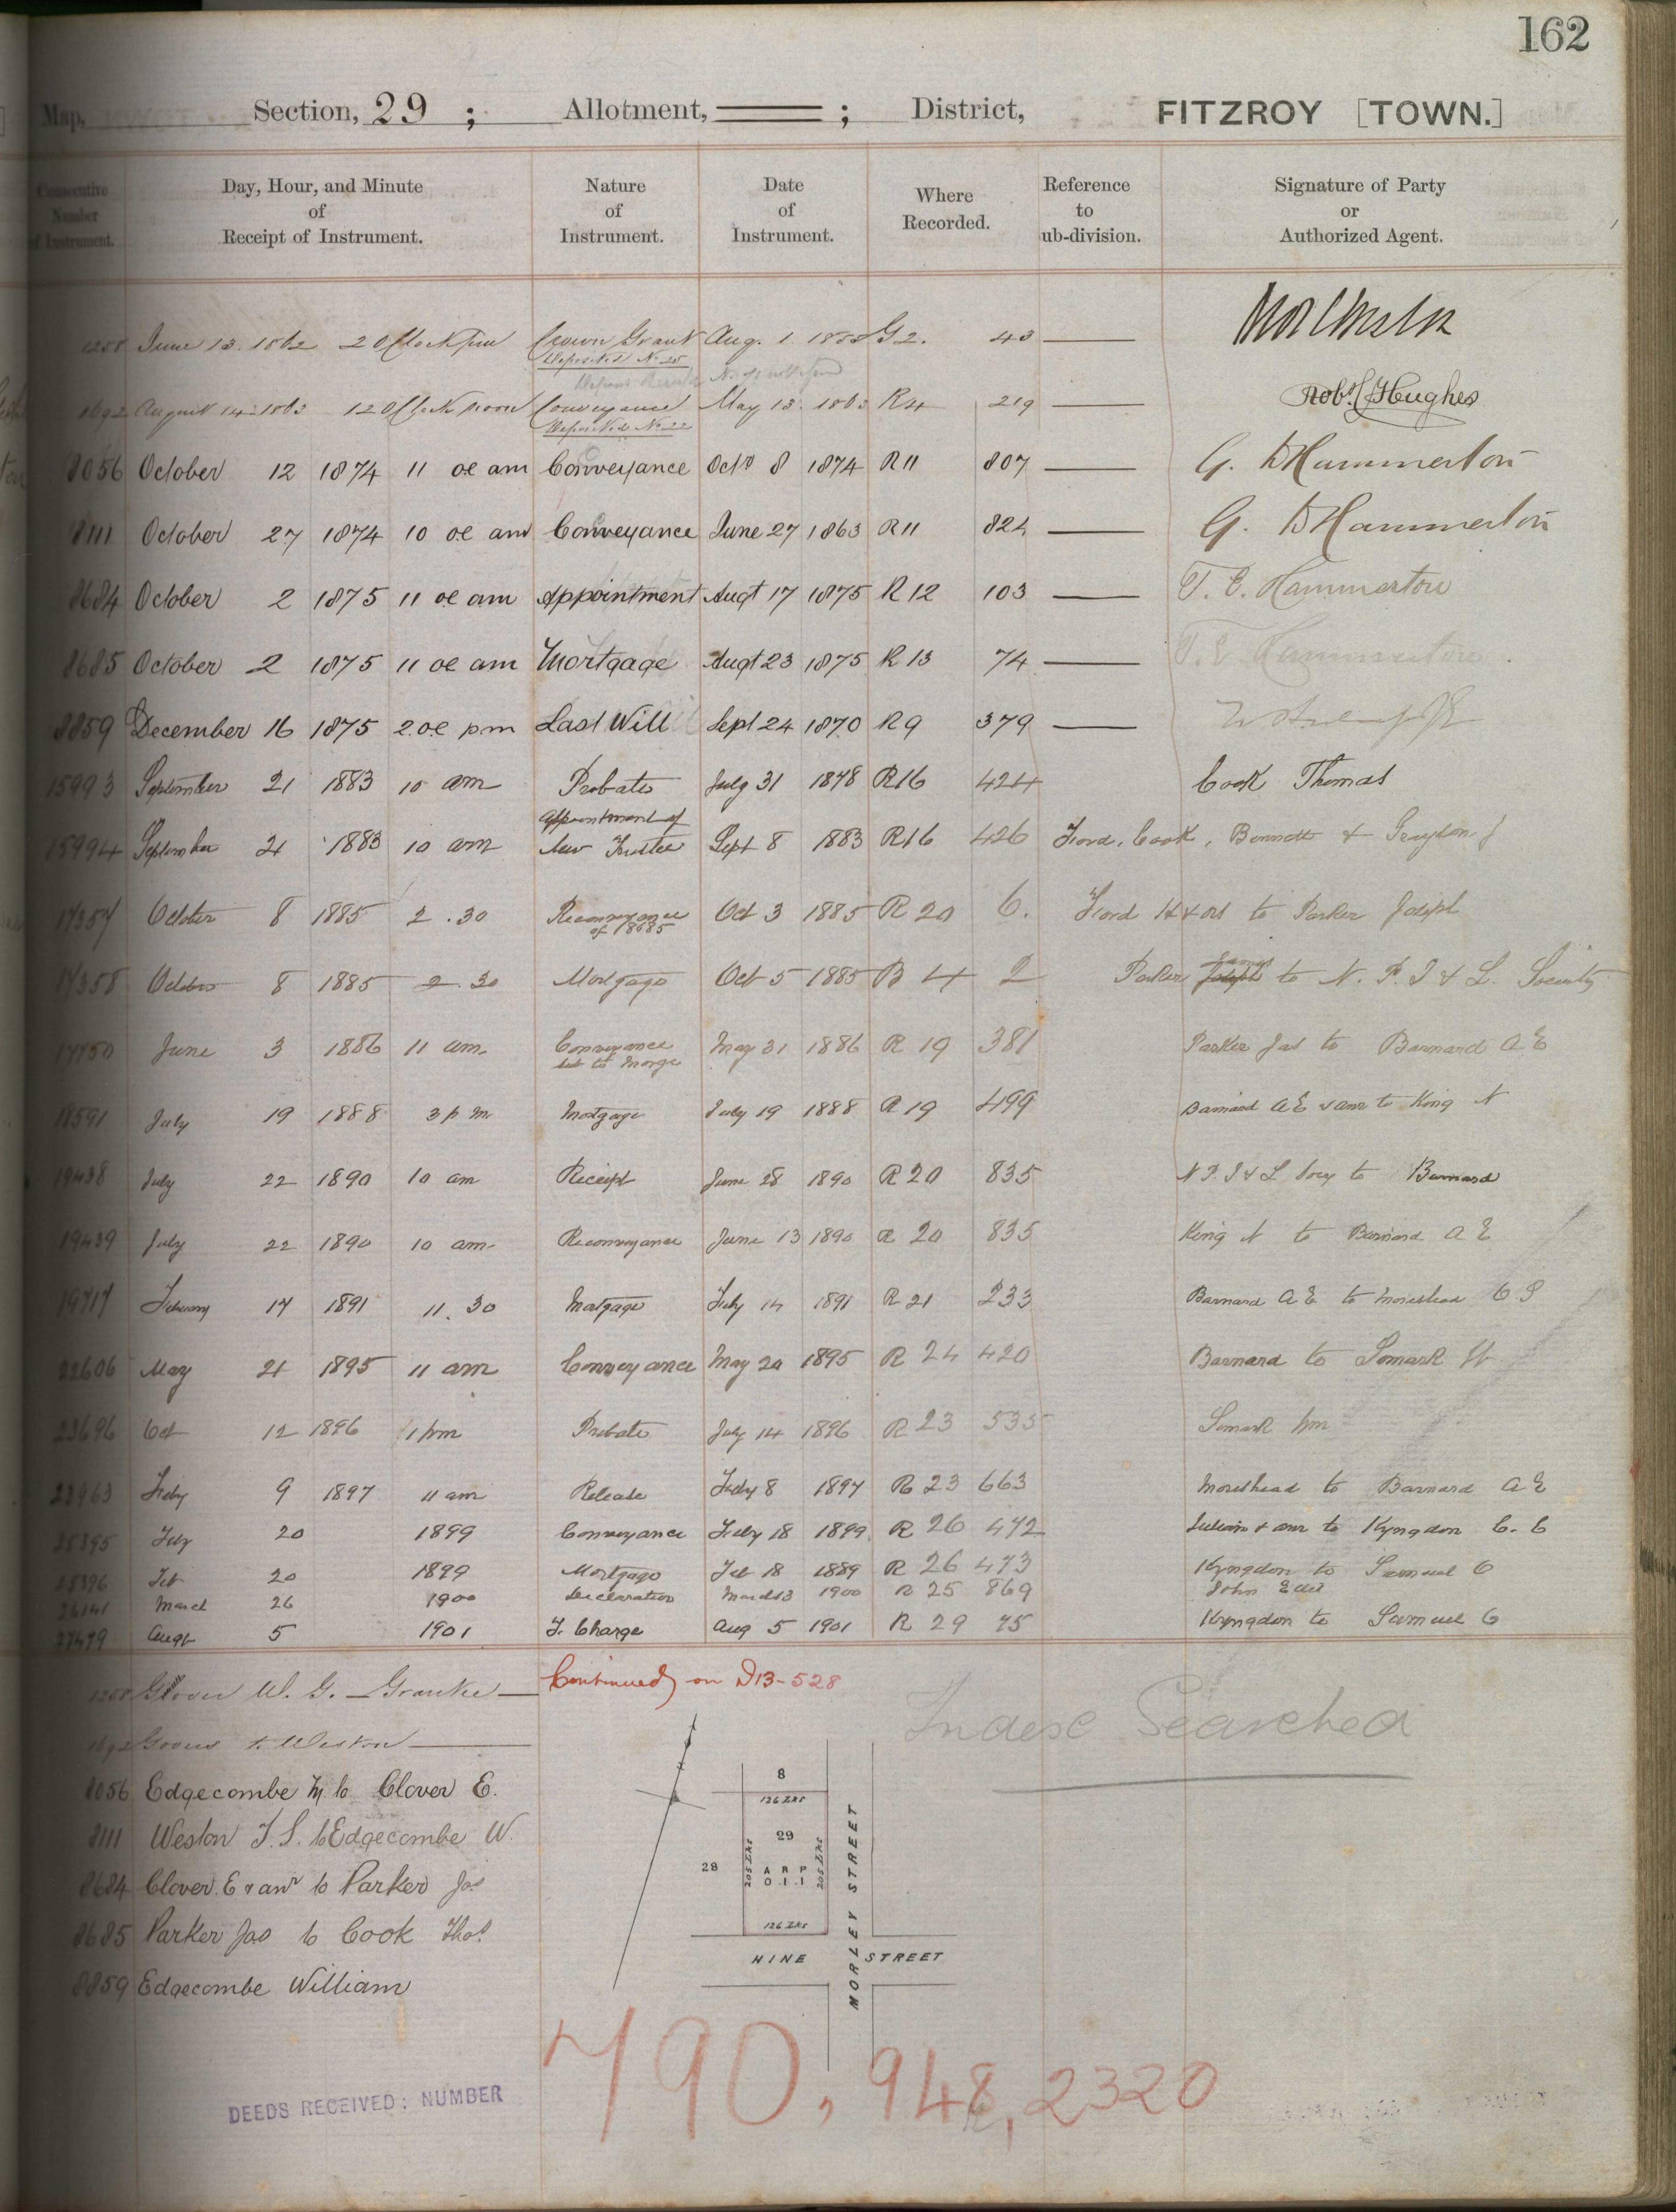 162
Map, Section, 29 ; Allotment, ; District, FITZROY [TOWN.]
Consecutive Number of Instrument.
Day, Hour, and Minute of Receipt of Instrument.
Nature of Instrument.
Date of Instrument.
Where Recorded.
Reference to ub-division.
Signature of Party or Authorized Agent.
June 13. 1862 2 OClock Crown Grant Aug. 1. G2. 43
Deposited No 25
1692 August 14 1863 12 OClock noon Conveyance May 13. 1863 R4 219 Robt Hughes
Deposited No 22
8056 October 12 1874 11 oc am Conveyance Octr 8 1874 R11 807 G. D Hammerton
8111 October 27 1874 10 oc am Conveyance June 27 1863 R11 824 G. D Hammerton
8684 October 2 1875 11 oc am Appointment Augt 17 1875 R12 103 T. E. Hammerton
8685 October 2 1875 11 oc am Mortgage Augt 23 1875 R 13 74 T. E. Hammerton
8859 December 16 1875 2 oc pm Last Will Sept 24 1870 R9 379
15993 September 21 1883 10 am Probate July 31 1878 R16 424 Cook Thomas
15994 September 21 1883 10 am Appointment of New Trustee Sept 8 1883 R16 426 Ford, Cook, Bennett & Graydon J
17357 October 8 1885 2.30 Reconveyance of 8685 Oct 3 1885 R 20 6. Ford H & ors to Parker Joseph
17358 October 8 1885 2.30 Mortgage Oct 5 1885 B 4 2 Parker Joseph James to N. P. I & L. Society
17750 June 3 1886 11 am. Conveyance sub to Morge May 31 1886 R 19 381 Parker Jas to Barnard A E
18591 July 19 1888 3 pm Mortgage July 19 1888 R 19 499 Barnard A E & anr to King N
19438 July 22 1890 10 am Receipt June 28 1890 R 20 835 N P. I & L Socy to Barnard
19439 July 22 1890 10 am Reconveyance June 13 1890 R 20 835 King N to Barnard A E
19717 February 17 1891 11.30 Mortgage Feby 14 1891 R 21 233 Barnard A E to Moreshead
22606 May 21 1895 11 am Conveyance May 20 1895 R 24 420 Barnard to Somark W
23696 Oct 12 1896 1 pm Probate July 14 1896 R 23 535 Somark Wm
23963 Feby 9 1897 11 am Release Feby 8 1897 R 23 663 Moreshead to Barnard A E
25395 Feby 20 1899 Conveyance Feby 18 1899 R 26 472 & anr to Kyngdon C. E
25396 Feb 20 1899 Mortgage Feb 18 1889 R 26 473 Kyngdon to Samuel C
26141 March 26 1900 Declaration March 13 1900 R 25 869 John
27479 Augt 5 1901 T. Charge Aug 5 1901 R 29 75 Kyngdon to Samuel C
Continued on D13-528
1258 Glover W. G. Grantee
1692 to Weston
8056 Edgecombe M to Clover E.
8111 Weston T. S. to Edgecombe W.
8684 Clover E & anr to Parker Jas
8685 Parker Jas to Cook Thos.
8859 Edgecombe William
Index Searched
8
126 LKS
29
28
205 LKS
A R P
0. 1. 1
205 LKS
126 LKS
MORLEY STREET
HINE STREET
790, 948, 2320
DEEDS RECEIVED: NUMBER